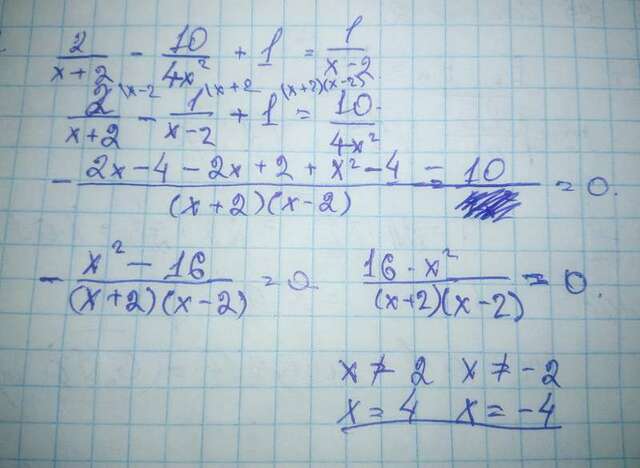 2/(x+2) - 10/4x² + 1 = 1/(x-2)
2\x-2/(x+2) - 1\(x+2/(x-2) + 1\(x+2)(x-2) = 10/4x²
- (2x - 4 - 2x + 2 + x² - 4 - 10)/((x+2)(x-2)) = 0.
- (x² - 16)/((x+2)(x-2)) = 0 (16 - x²)/((x+2)(x-2)) = 0.
x ≠ 2 x ≠ -2
x = 4 x = -4